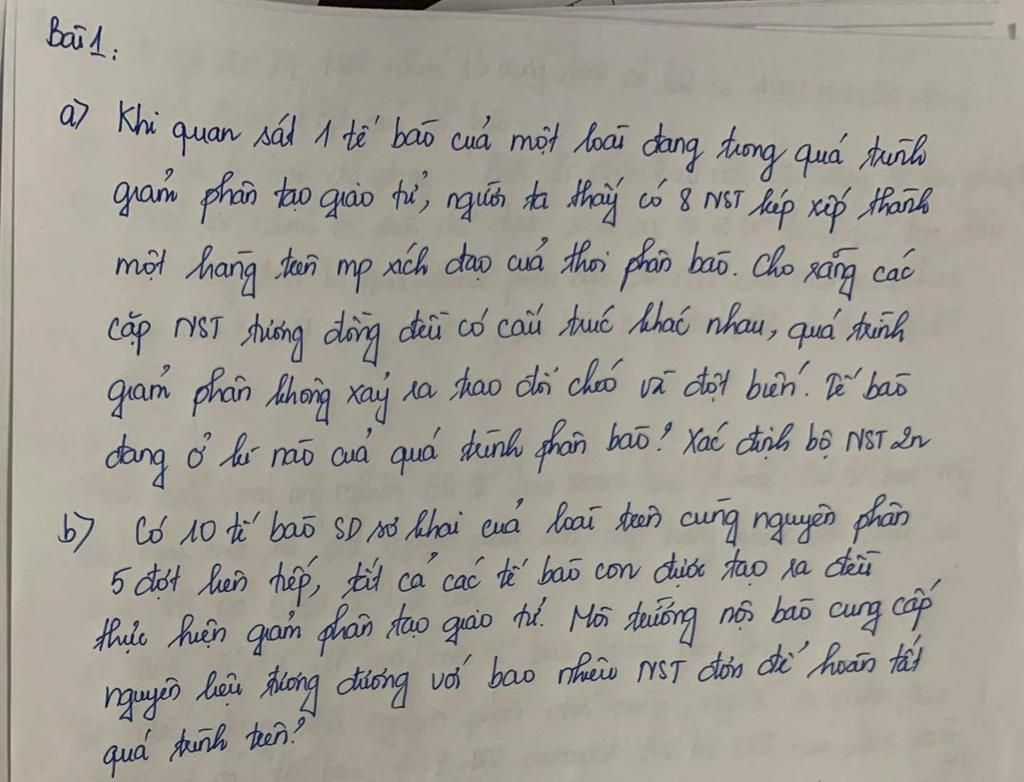 Bài 1:
a) Khi quan sát 1 tế bào của một loài đang trong quá trình
giảm phân tạo giao tử, người ta thấy có 8 NST kép xếp thành
một hàng trên mp xích đạo của thoi phân bào. Cho rằng các
cặp NST tương đồng đều có cấu trúc khác nhau, quá trình
giảm phân không xảy ra trao đổi chéo và đột biến. Tế bào
đang ở kì nào của quá trình phân bào? Xác định bộ NST 2n
b) Có 10 tế bào SD sơ khai của loài trên cùng nguyên phân
5 đợt liên tiếp, tất cả các tế bào con được tạo ra đều
thực hiện giảm phân tạo giao tử. Môi trường nội bào cung cấp
nguyên liệu tương đương với bao nhiêu NST đơn để hoàn tất
quá trình trên?